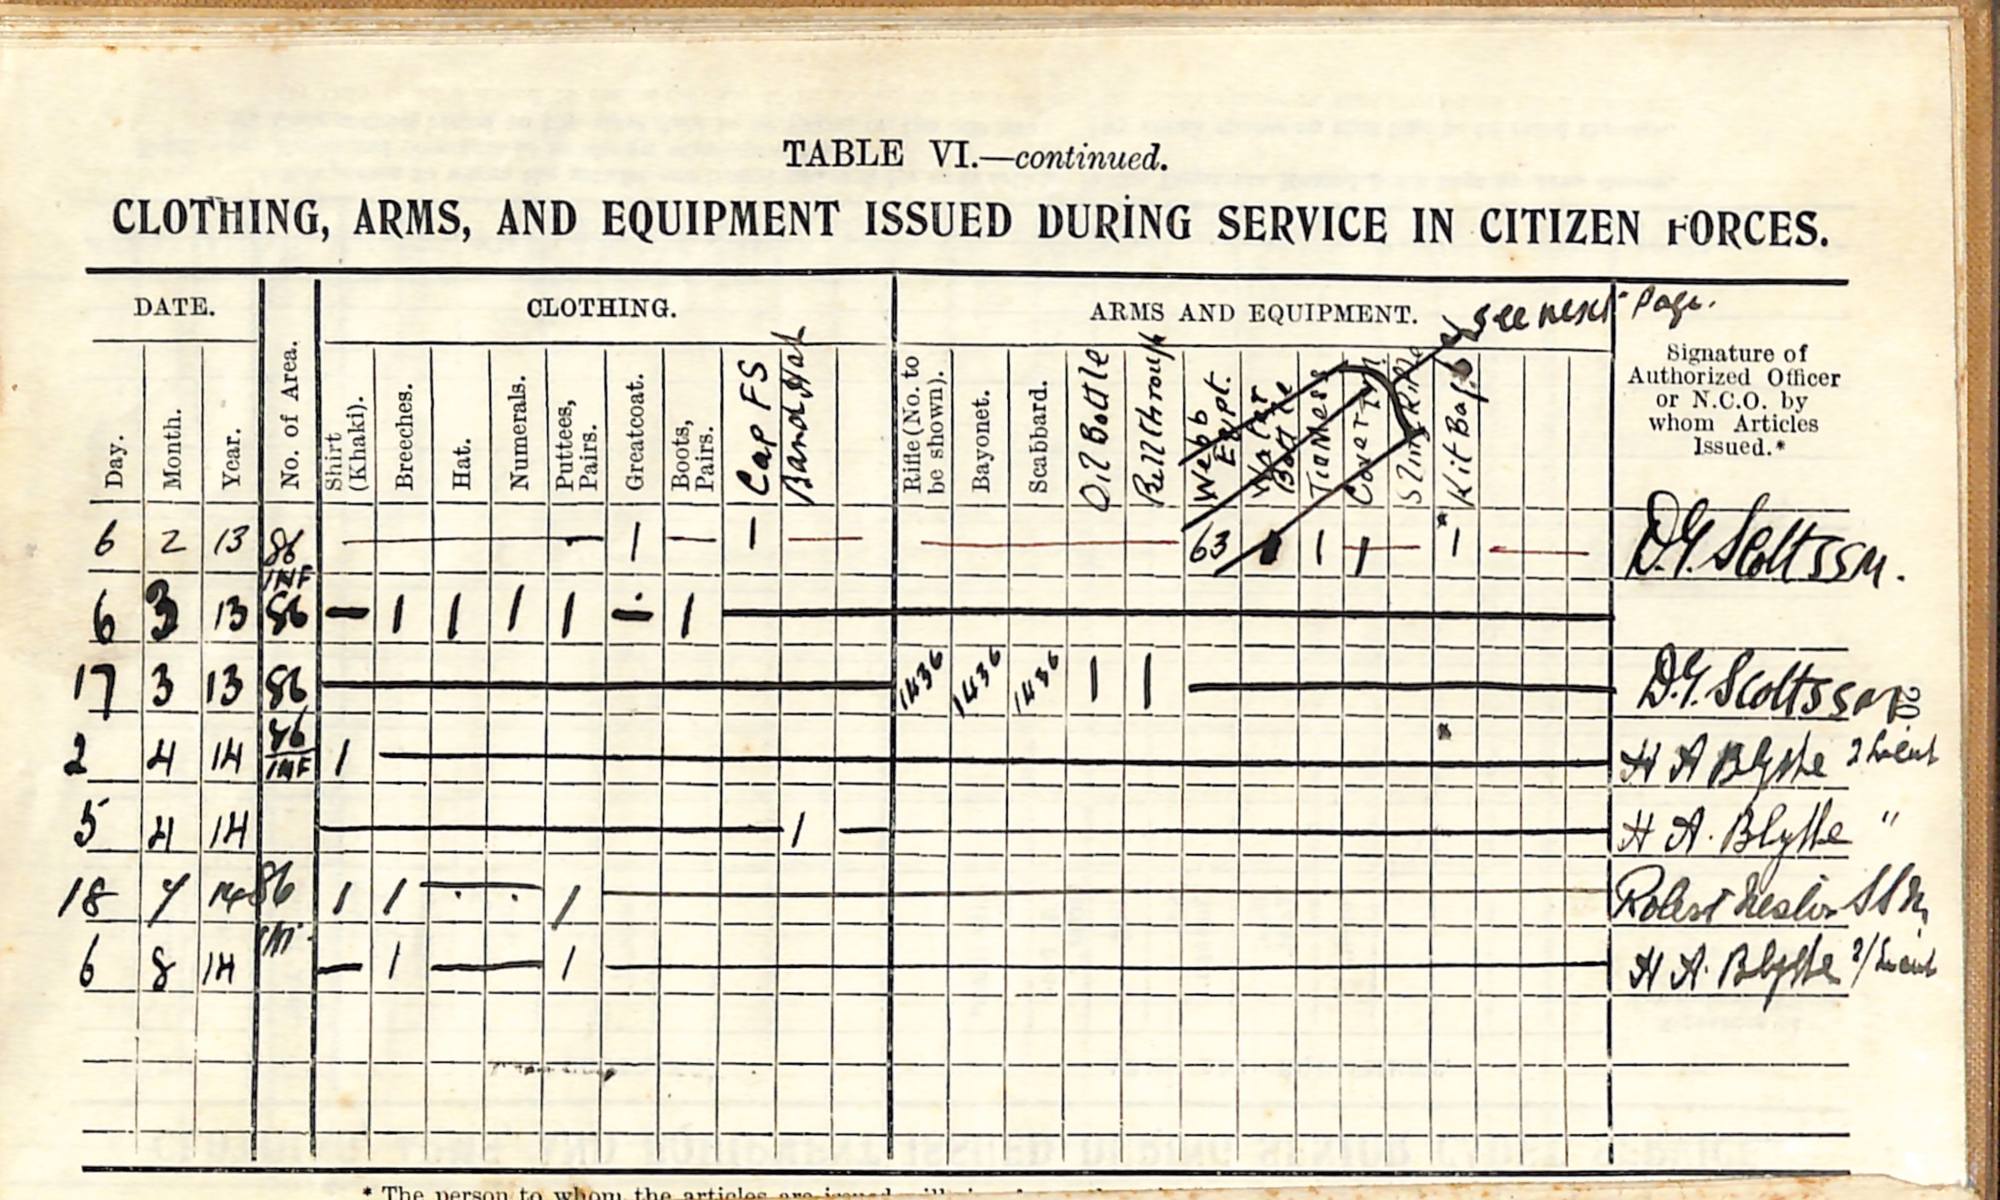 TABLE VI.—continued.
CLOTHING, ARMS, AND EQUIPMENT ISSUED DURING SERVICE IN CITIZEN FORCES.
DATE. No. of Area. CLOTHING. ARMS AND EQUIPMENT. see next Page.
Signature of Authorized Officer or N.C.O. by whom Articles Issued.*
Day. Month. Year. Shirt (Khaki). Breeches. Hat. Numerals. Puttees, Pairs. Greatcoat. Boots, Pairs. Cap FS Band Hat Rifle (No. to be shown). Bayonet. Scabbard. Oil Bottle Pullthrough Webb Eqpt. Water Bottle Tin Mess Cover Tin Sling Rifle Kit Bag
6 2 13 86 INF — 1 — 1 — — 63 1 1 — 1 * 1 — D.G. Scott SSM.
6 3 13 86 — 1 1 1 1 — 1 —
17 3 13 86 — 1436 1436 1436 1 1 — D.G. Scott SSM
2 4 14 86 INF 1 — * H A Blythe 2 Lieut
5 4 14 — 1 — H A. Blythe "
18 7 14 86 1 1 — 1 — Robert SSM
6 8 14 Inf — 1 — 1 — H A. Blythe 2/Lieut
* The person to whom the articles are issued